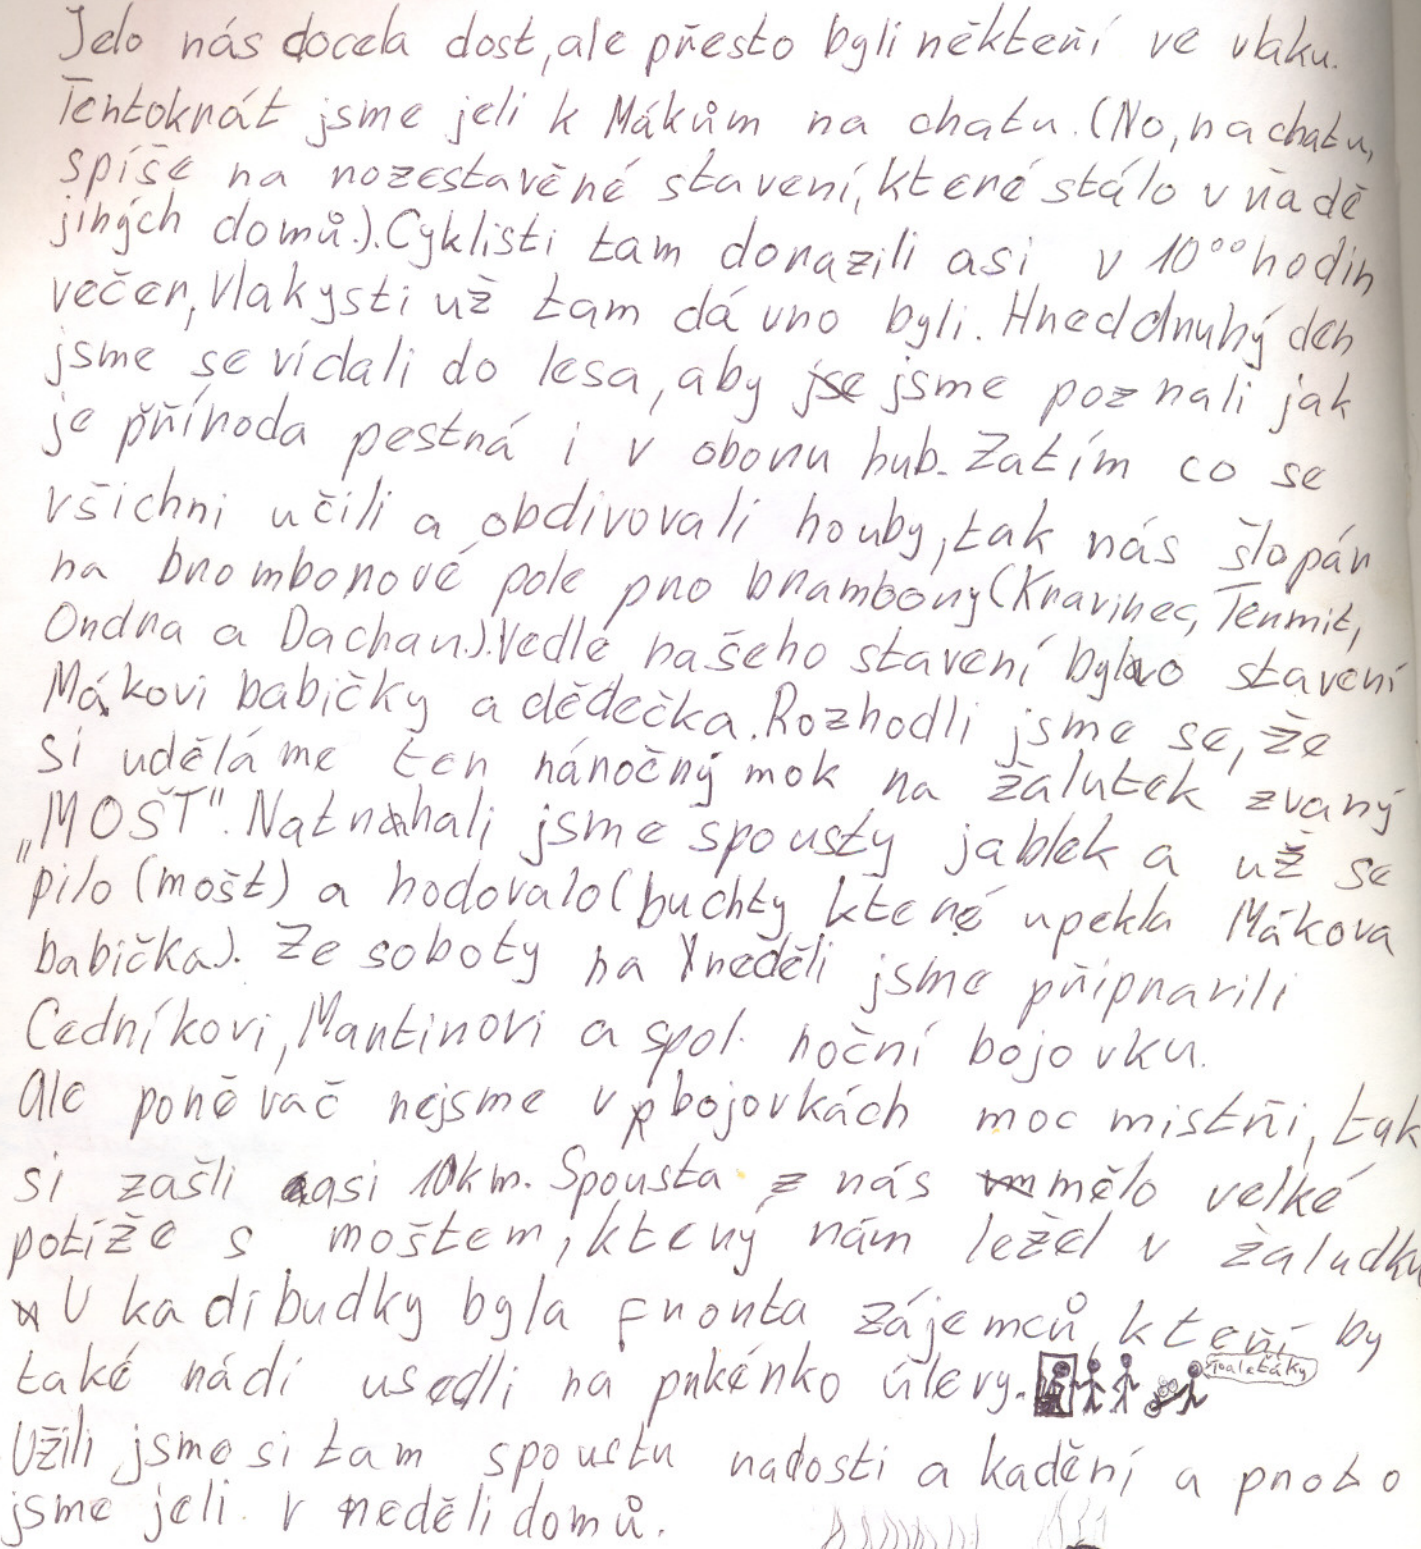 Jelo nás docela dost, ale přesto byli někteří ve vlaku.
Tentokrát jsme jeli k Mákům na chatu. (No, na chatu,
spíše na rozestavěné stavení, které stálo v řadě
jiných domů.). Cyklisti tam dorazili asi v 10⁰⁰ hodin
večer, vlakysti už tam dávno byli. Hned druhý den
jsme se vídali do lesa, aby jse jsme poznali jak
je příroda pestrá i v oboru hub. Zatím co se
všichni učili a obdivovali houby, tak nás šlo pár
na bromborové pole pro brambory (Kravinec, Termit,
Ondra a Dachau.). Vedle našeho stavení bylo stavení
Mákovi babičky a dědečka. Rozhodli jsme se, že
si uděláme ten náročný mok na žalutek zvaný
„MOŠT". Natrhali jsme spousty jablek a už se
pilo (mošt) a hodovalo (buchty které upekla Mákova
babička). Ze soboty na neděli jsme připravili
Cedníkovi, Martinovi a spol. noční bojovku.
Ale poněvač nejsme v bojovkách moc mistři, tak
si zašli asi 10km. Spousta z nás mělo velké
potíže s moštem, který nám ležel v žaludku
U kadibudky byla fronta zájemců, kteří by
také rádi usedli na prkénko úlevy.
Toaleťáky
Užili jsme si tam spoustu radosti a kadění a proto
jsme jeli v neděli domů.